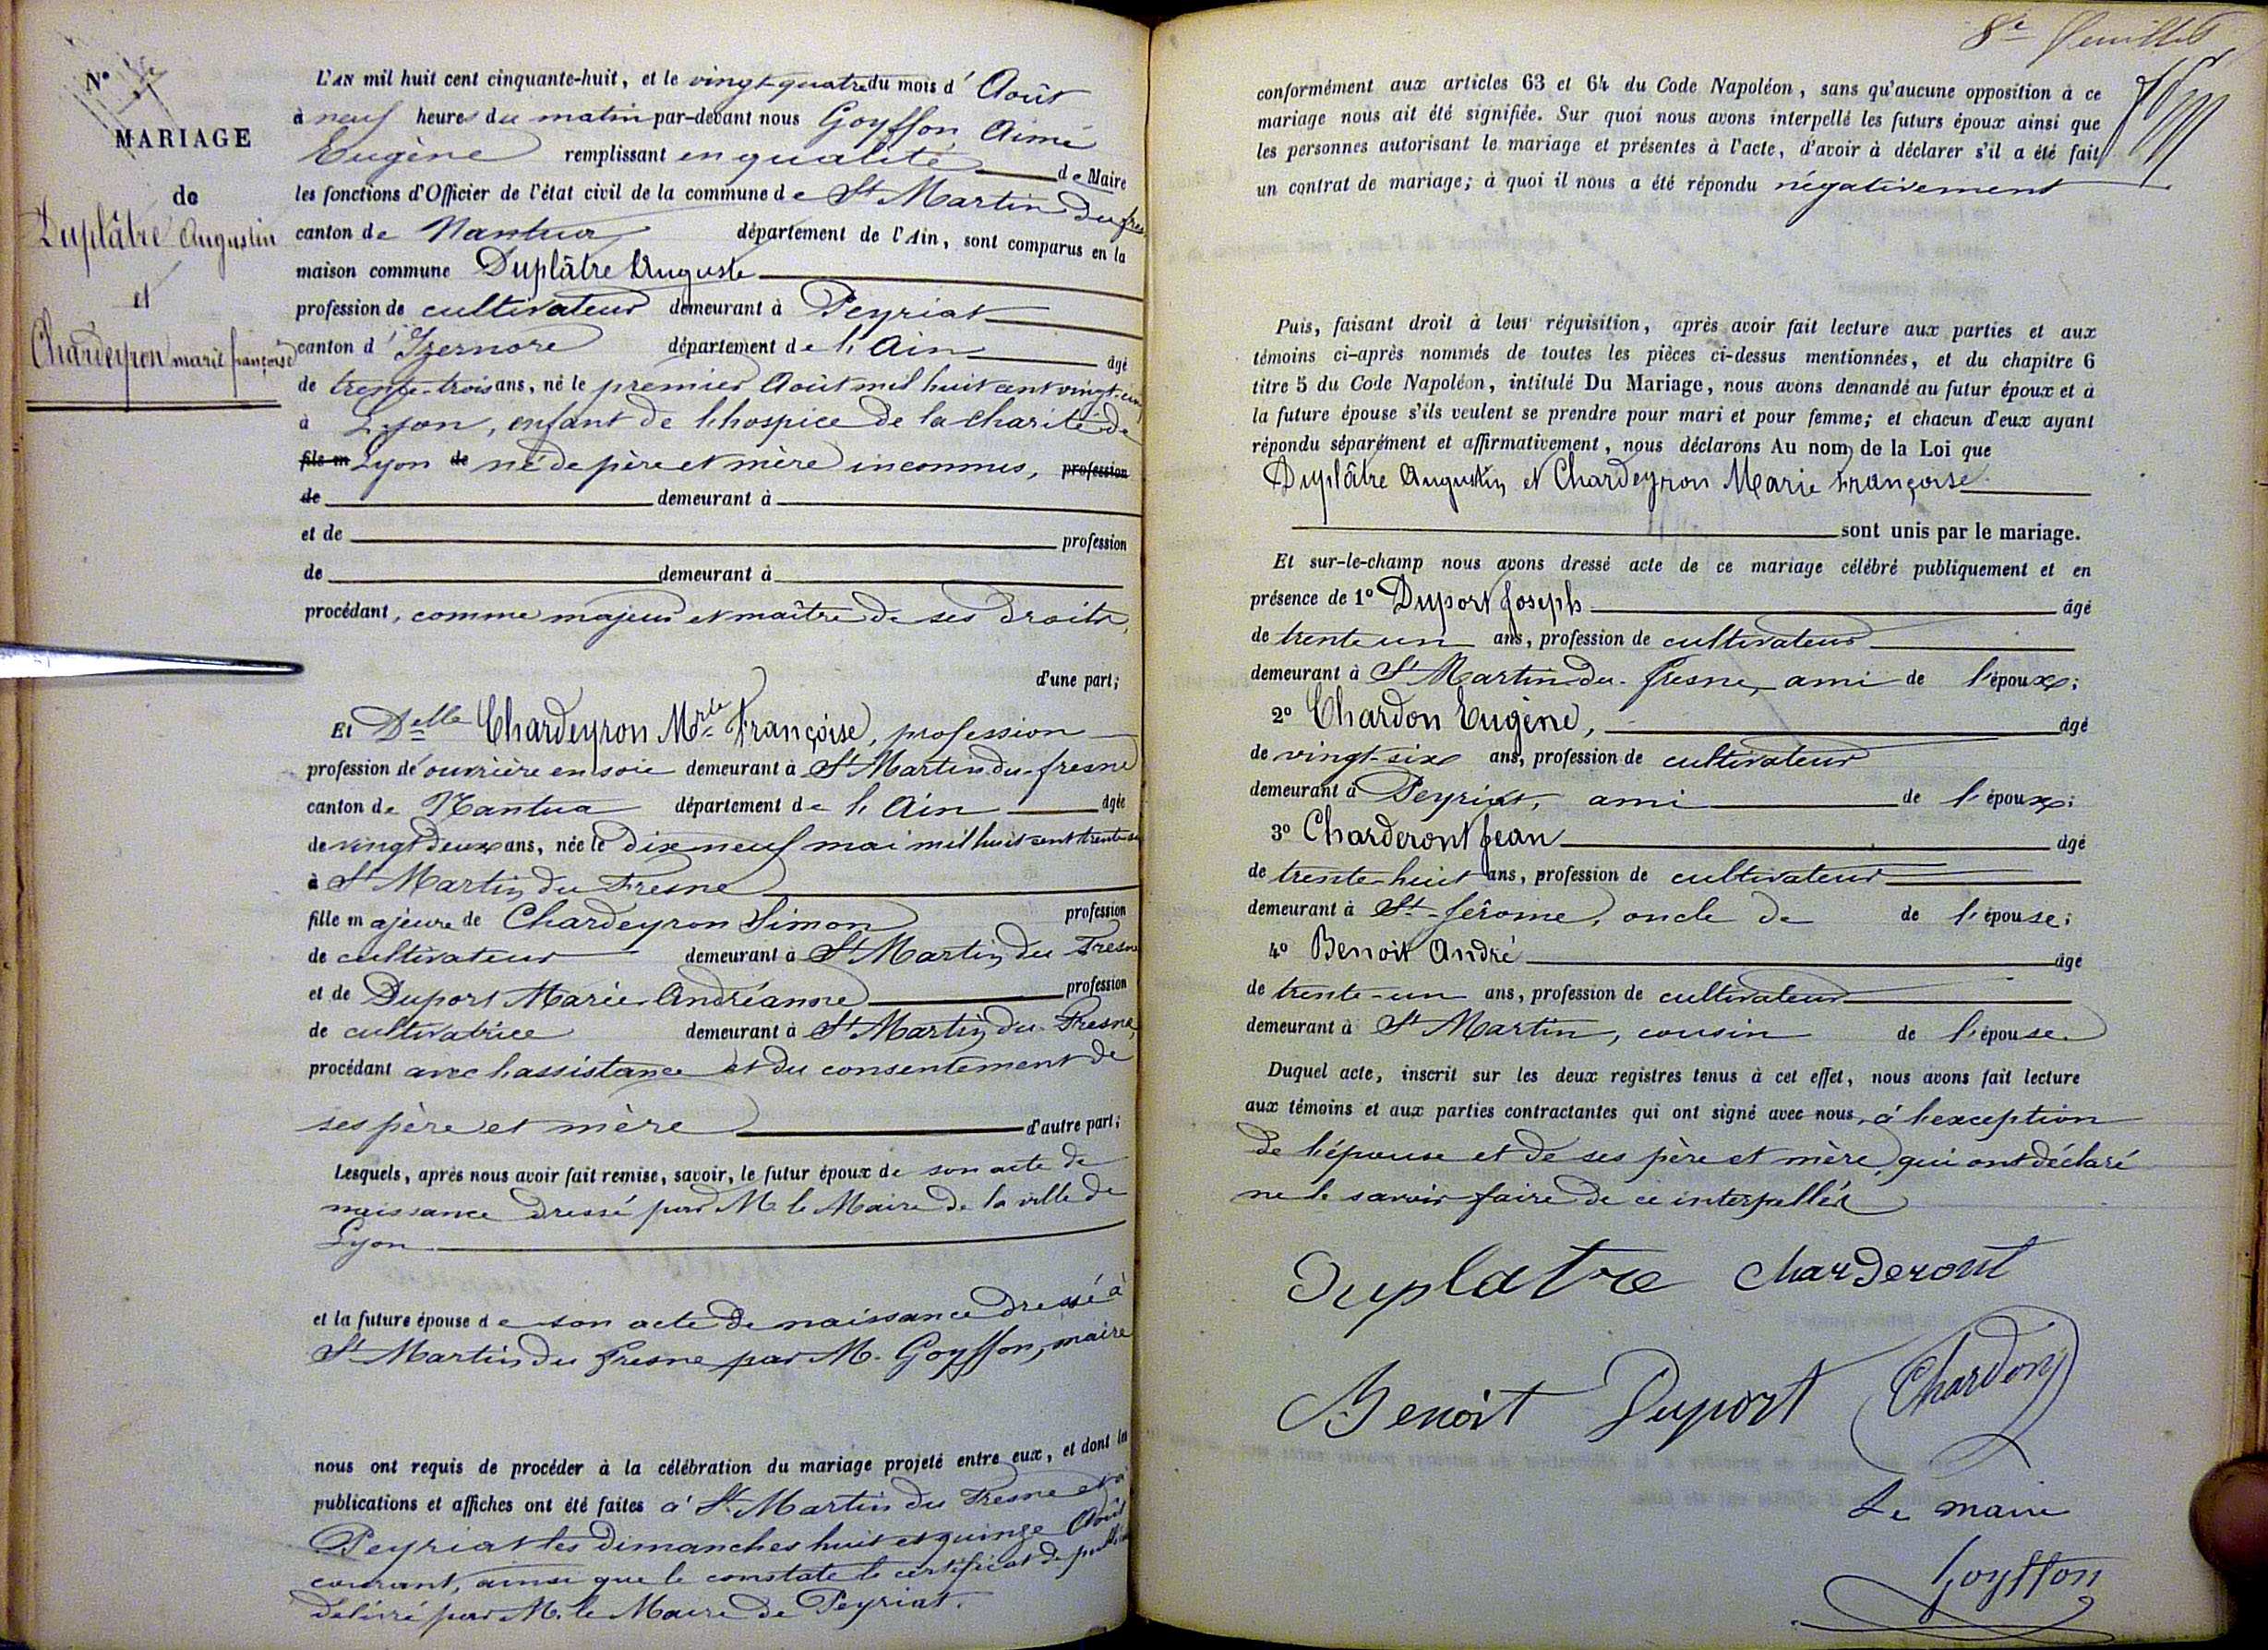 N°
MARIAGE
de
Duplâtre Augustin
et
Chardeyron marie françoise
L'AN mil huit cent cinquante-huit, et le vingt-quatre du mois d' Août
à neuf heures du matin par-devant nous Goyffon Aimé
Eugène remplissant en qualité de Maire
les fonctions d'Officier de l'état civil de la commune de St Martin du fres
canton de Nantua département de l'Ain, sont comparus en la
maison commune Duplâtre Auguste
profession de cultivateur demeurant à Peyriat
canton d' Izernore département de l'Ain âgé
de trente-trois ans, né le premier Août mil huit cent vingt-cinq
à Lyon, enfant de l'hospice de la charité de
fils m Lyon de né de père et mère inconnus, profession
de demeurant à
et de profession
de demeurant à
procédant, comme majeur et maître de ses droits,
d'une part;
Et Delle Chardeyron Mrie Françoise, profession
profession d'ouvrière en soie demeurant à St Martin-du-fresne
canton de Nantua département de l'Ain âgée
de vingt deux ans, née le dix neuf mai mil huit cent trente six
à St Martin du Fresne
fille majeure de Chardeyron Simon profession
de cultivateur demeurant à St Martin du Fresne
et de Duport Marie Andréanne profession
de cultivatrice demeurant à St Martin du Fresne,
procédant avec l'assistance et du consentement de
ses père et mère d'autre part;
Lesquels, après nous avoir fait remise, savoir, le futur époux de son acte de
naissance dressé par M. le Maire de la ville de
Lyon
et la future épouse de son acte de naissance dressé à
St Martin du Fresne par M. Goyffon, maire
nous ont requis de procéder à la célébration du mariage projeté entre eux, et dont les
publications et affiches ont été faites à St Martin du Fresne et à
Peyriat les dimanches huit et quinze Août
courant, ainsi que le constate le certificat de
délivré par M. le Maire de Peyriat.
8e feuillet
conformément aux articles 63 et 64 du Code Napoléon, sans qu'aucune opposition à ce
mariage nous ait été signifiée. Sur quoi nous avons interpellé les futurs époux ainsi que
les personnes autorisant le mariage et présentes à l'acte, d'avoir à déclarer s'il a été fait
un contrat de mariage; à quoi il nous a été répondu négativement
Puis, faisant droit à leur réquisition, après avoir fait lecture aux parties et aux
témoins ci-après nommés de toutes les pièces ci-dessus mentionnées, et du chapitre 6
titre 5 du Code Napoléon, intitulé Du Mariage, nous avons demandé au futur époux et à
la future épouse s'ils veulent se prendre pour mari et pour femme; et chacun d'eux ayant
répondu séparément et affirmativement, nous déclarons Au nom de la Loi que
Duplâtre Augustin et Chardeyron Marie Françoise
sont unis par le mariage.
Et sur-le-champ nous avons dressé acte de ce mariage célébré publiquement et en
présence de 1° Duport Joseph âgé
de trente un ans, profession de cultivateur
demeurant à St Martin-du-fresne, ami de l'époux;
2° Chardon Eugène, âgé
de vingt-six ans, profession de cultivateur
demeurant à Peyriat, ami de l'époux;
3° Charderont Jean âgé
de trente-huit ans, profession de cultivateur
demeurant à St-Jérome, oncle de de l'épouse;
4° Benoit André âgé
de trente-un ans, profession de cultivateur
demeurant à St Martin, cousin de l'épouse.
Duquel acte, inscrit sur les deux registres tenus à cet effet, nous avons fait lecture
aux témoins et aux parties contractantes qui ont signé avec nous, à l'exception
de l'épouse et de ses père et mère, qui ont déclaré
ne le savoir faire de ce interpellés
Duplatre Charderont
Benoit Duport Chardon
Le maire
Goyffon